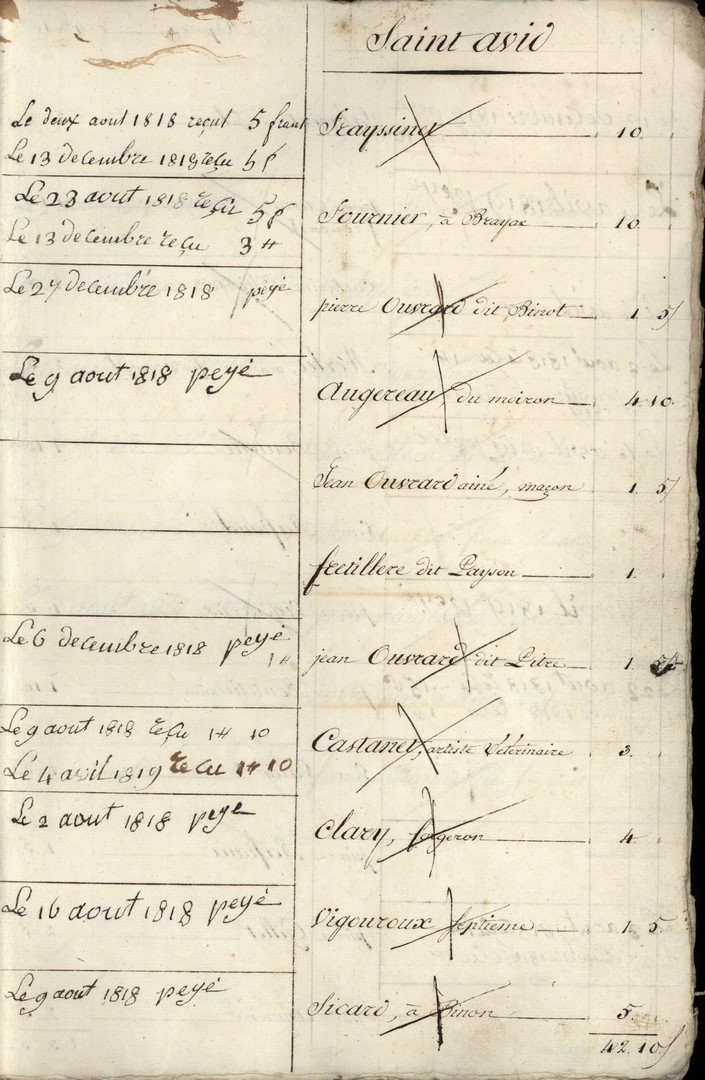 Saint avid
Le deux aout 1818 reçut 5 frant
Le 13 decembre 1818 reçu 5 f
Frayssinet 10.
Le 23 aout 1818 reçu 5 f
Le 13 decembre reçu 3 #
Fournier, à Brayac 10.
Le 27 decembre 1818 peyé
pierre Ouvrard dit Binot 1. 5
Le 9 aout 1818 peyé
Augereau, du meiron 4. 10.
Jean Ouvrard ainé, maçon 1. 5
fretillere dit Payson 1.
Le 6 decembre 1818 peyé
1 #
jean Ouvrard dit Pitre 1.
Le 9 aout 1818 reçu 1 # 10
Le 4 avil 1819 reçu 1 # 10
Castanet, artiste Véterinaire 3.
Le 2 aout 1818 peyé
Clary, forgeron 4.
Le 16 aout 1818 peyé
Vigouroux septieme 1. 5
Le 9 aout 1818 peyé
Sicard, à Binon 5.
42. 10